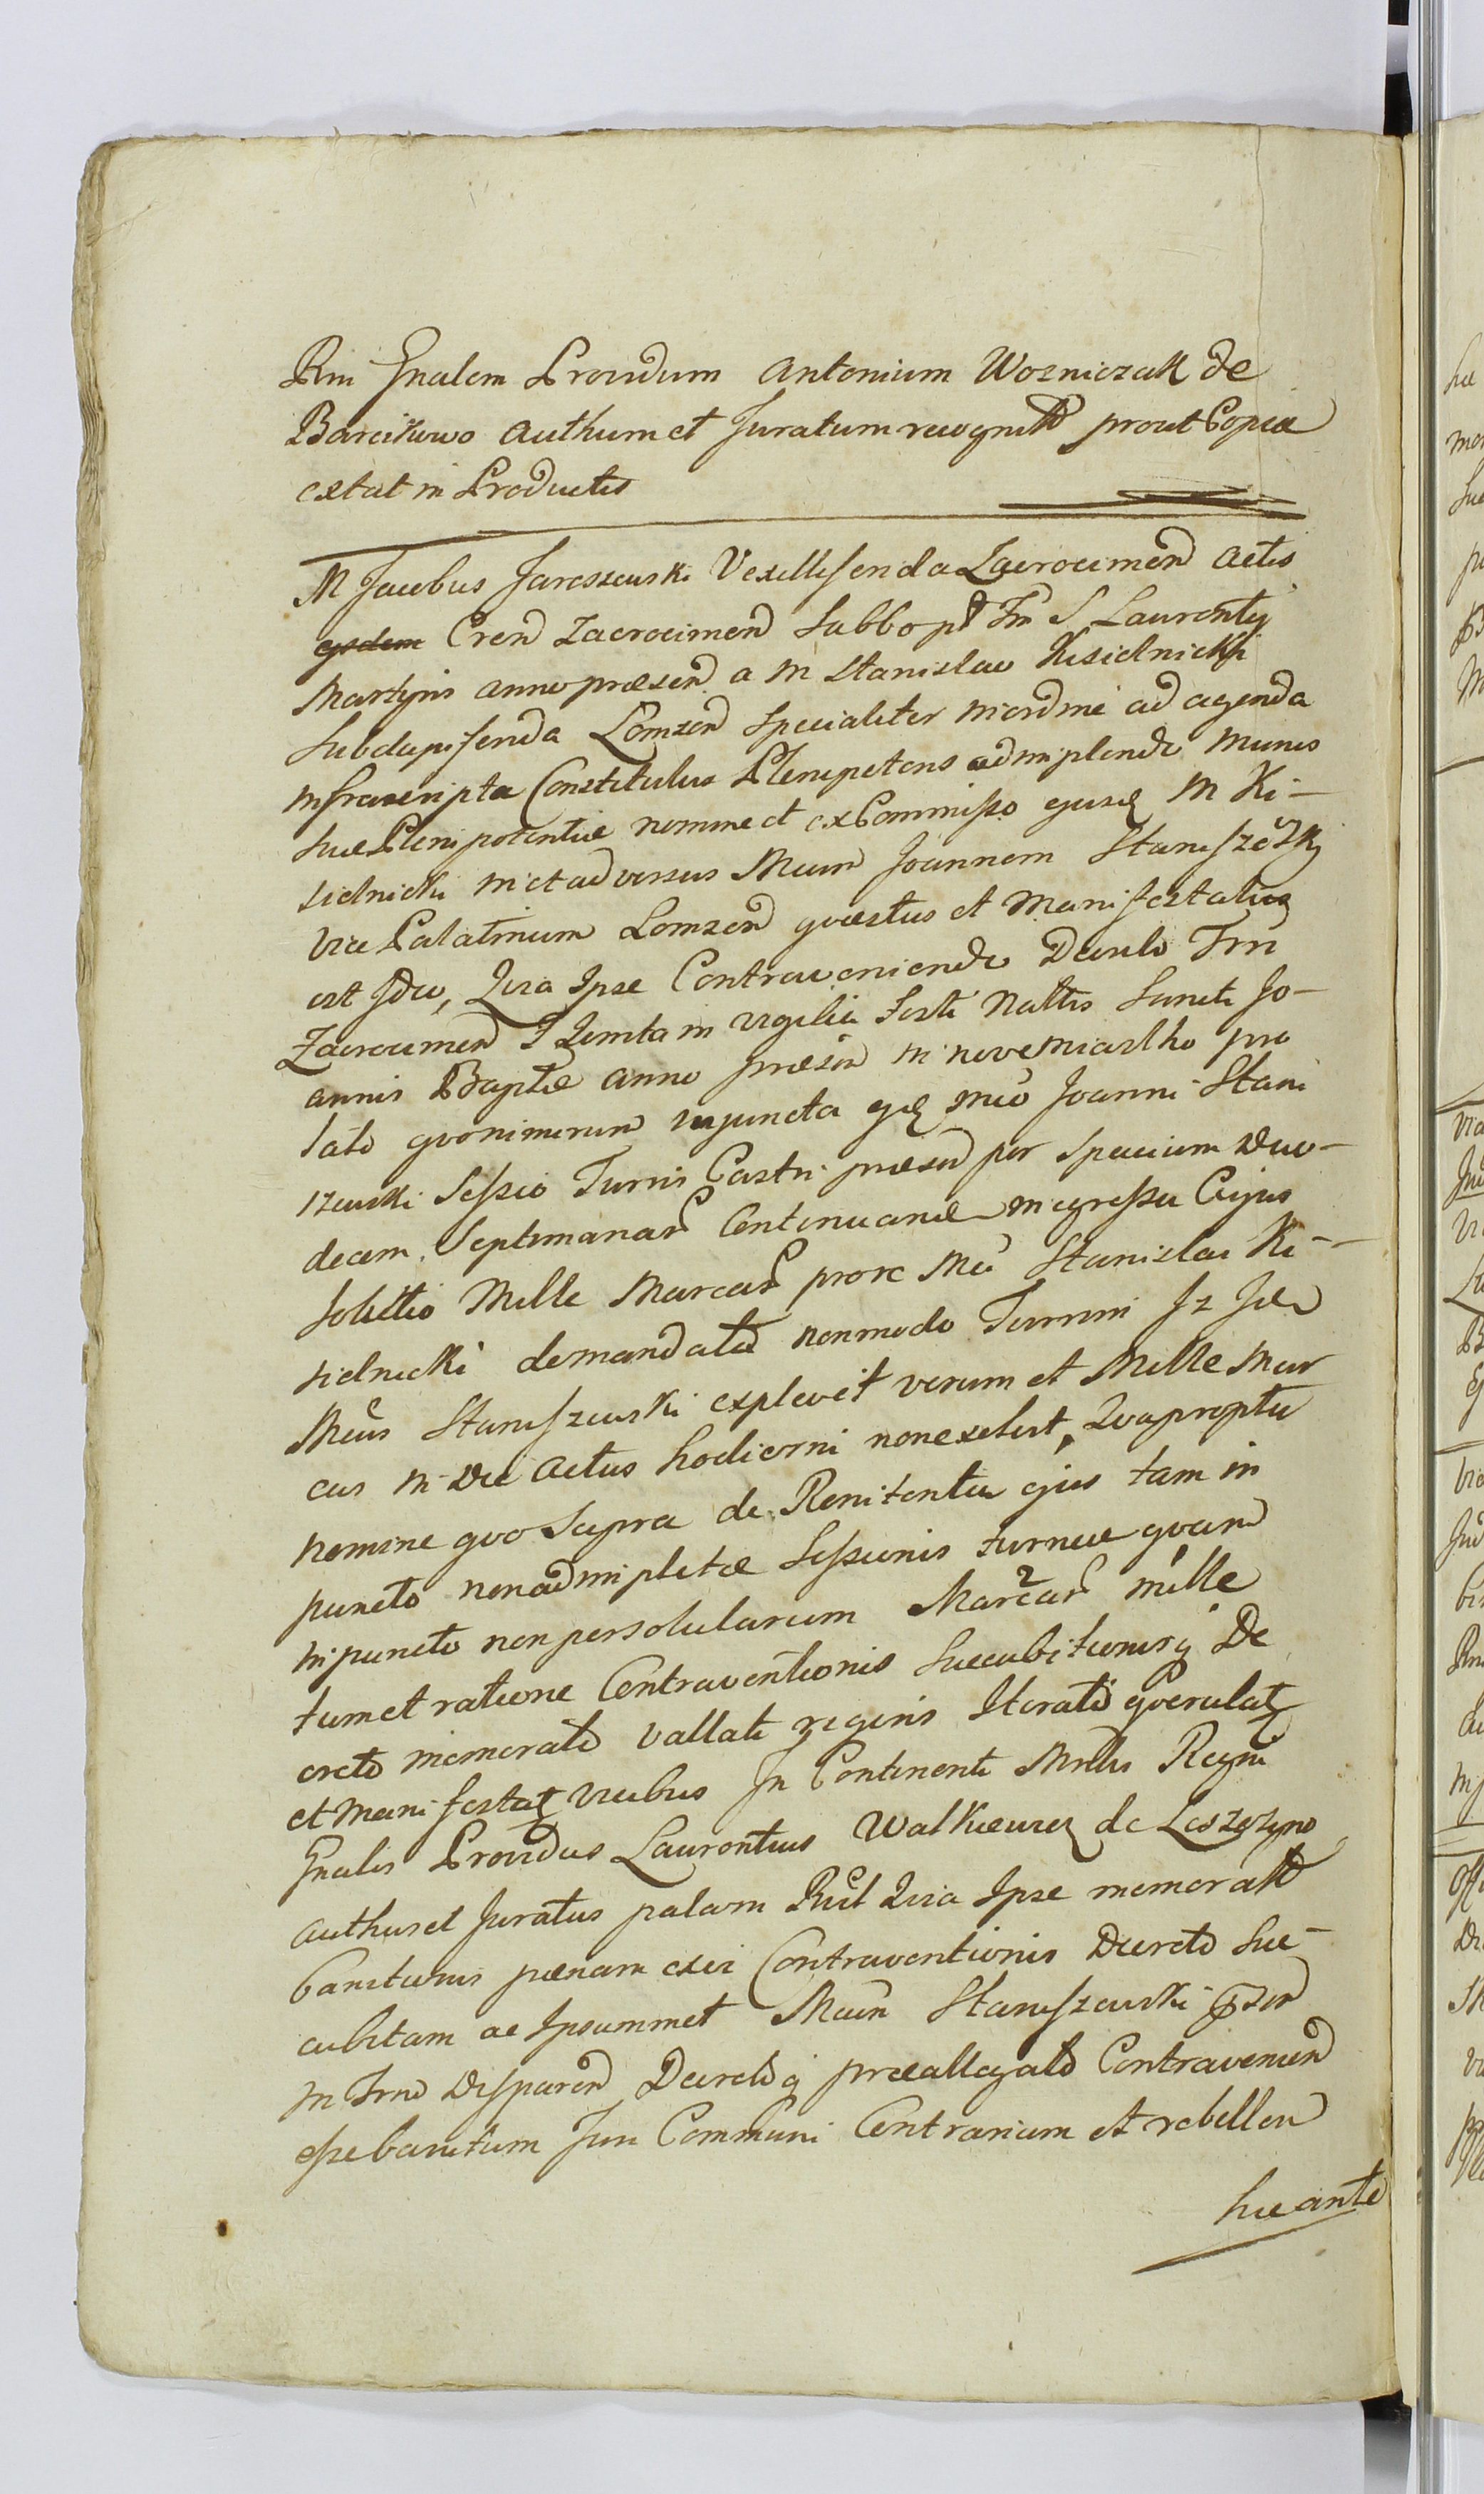 Rni Gnalem Providum Antonium Wozniczak de
Barcikowo Authum et Juratum recognitt prout Copia
extat in Productis
M Jacobus Jaroszewski Vexillifenda Zacrocimen Actis
ejsdem Cren Zacrocimen Sabbo pt Fm S Laurentij
Martyris anno præsen a M Stanislao Kisielnicki
Subdapifenda Lomzen Specialiter in ordine ad agenda
infrascripta Constitutus Plenipotens adimplendo Munus
suæ Plenipotentiæ nomine et ex Commisso ejusd M Ki-
sielnicki in et adversus Mcum Joannem Staniszewski
Vice Palatinum Lomzen quæstus et Manifestatus
est Ideo, Quia Ipse Contraveniendo Decreto Trn
Zacrocimen F Quinta in vigilia Festi Nattis Sancti Jo-
annis Baptæ anno præsen in novemiastho pro
lato quonimerum injuncta ejd Mco Joanni Stani
szewski Sessio Turris Castri præsen per Spacium Duo-
decem Septimanar Continuanæ in egressu Cujus
Solutio Mille Marcar prore Mci Stanislai Ki-
sielnicki demandata nonmodo Turrim Iz Idem
Mcus Staniszewski explevit verum et Mille Mar
cas in Die Actus hodierni non exolvit, Quapropter
nomine quo Supra de Renitentia ejus tam in
puncto non adimpletæ Sessionis turneæ quam
in puncto non persolutarum Marcar mille
tum et ratione Contraventionis Succubitionisq De
creto memorato Vallati regeris Iterato querulat
et Manifestat vicibus In Continenti Mntlis Regni
Gnalis Providus Laurentius Walkiewicz de Leszczyno
Authus et Juratus palam Rcit Quia Ipse memorato
banitionis pænam exvi Contraventionis Decreto Suc-
cubitam ac Ipsummet Mcum Staniszewski præsen
in Trno Disparen Decretoq præallegato Contravenien
esse banitum Juri Communi Contrarium et rebellem
hic ante